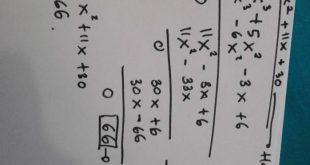 x² + 11x + 30
x³ + 5x² - 3x + 6
x³ - 6x²
11x² - 3x + 6
11x² - 33x
0
30x + 6
30x - 66
0
x² + 11x + 30
66.